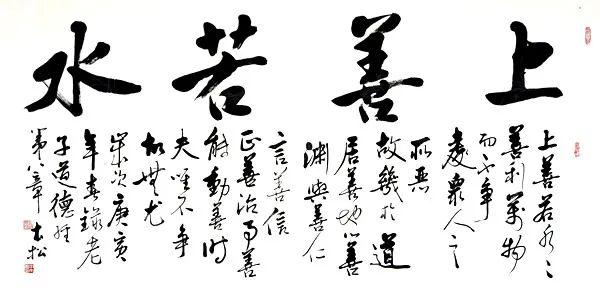 上善若水
上善若水〻
善利萬物
而不争
處衆人之
所恶
故幾於道
居善地心善
渊與善仁
言善信
正善治事善
能動善时
夫唯不争
故無尤
歲次庚寅
年春錄老
子道德经
第八章 松